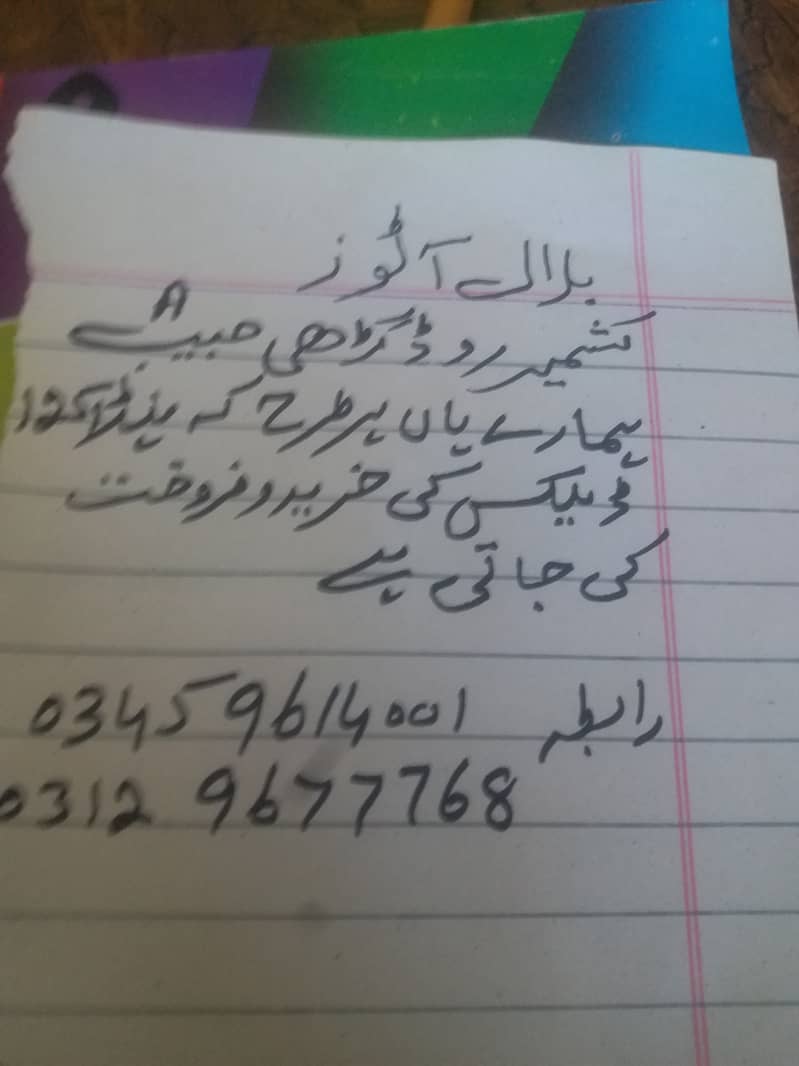 بلال آٹوز
کشمیر روڈ گڑھی حبیب
ہمارے ہاں ہر طرح کہ ہنڈا 125
ڈیلکس کی خرید و فروخت
کی جاتی ہے
رابطہ 03459614001
0312 9677768